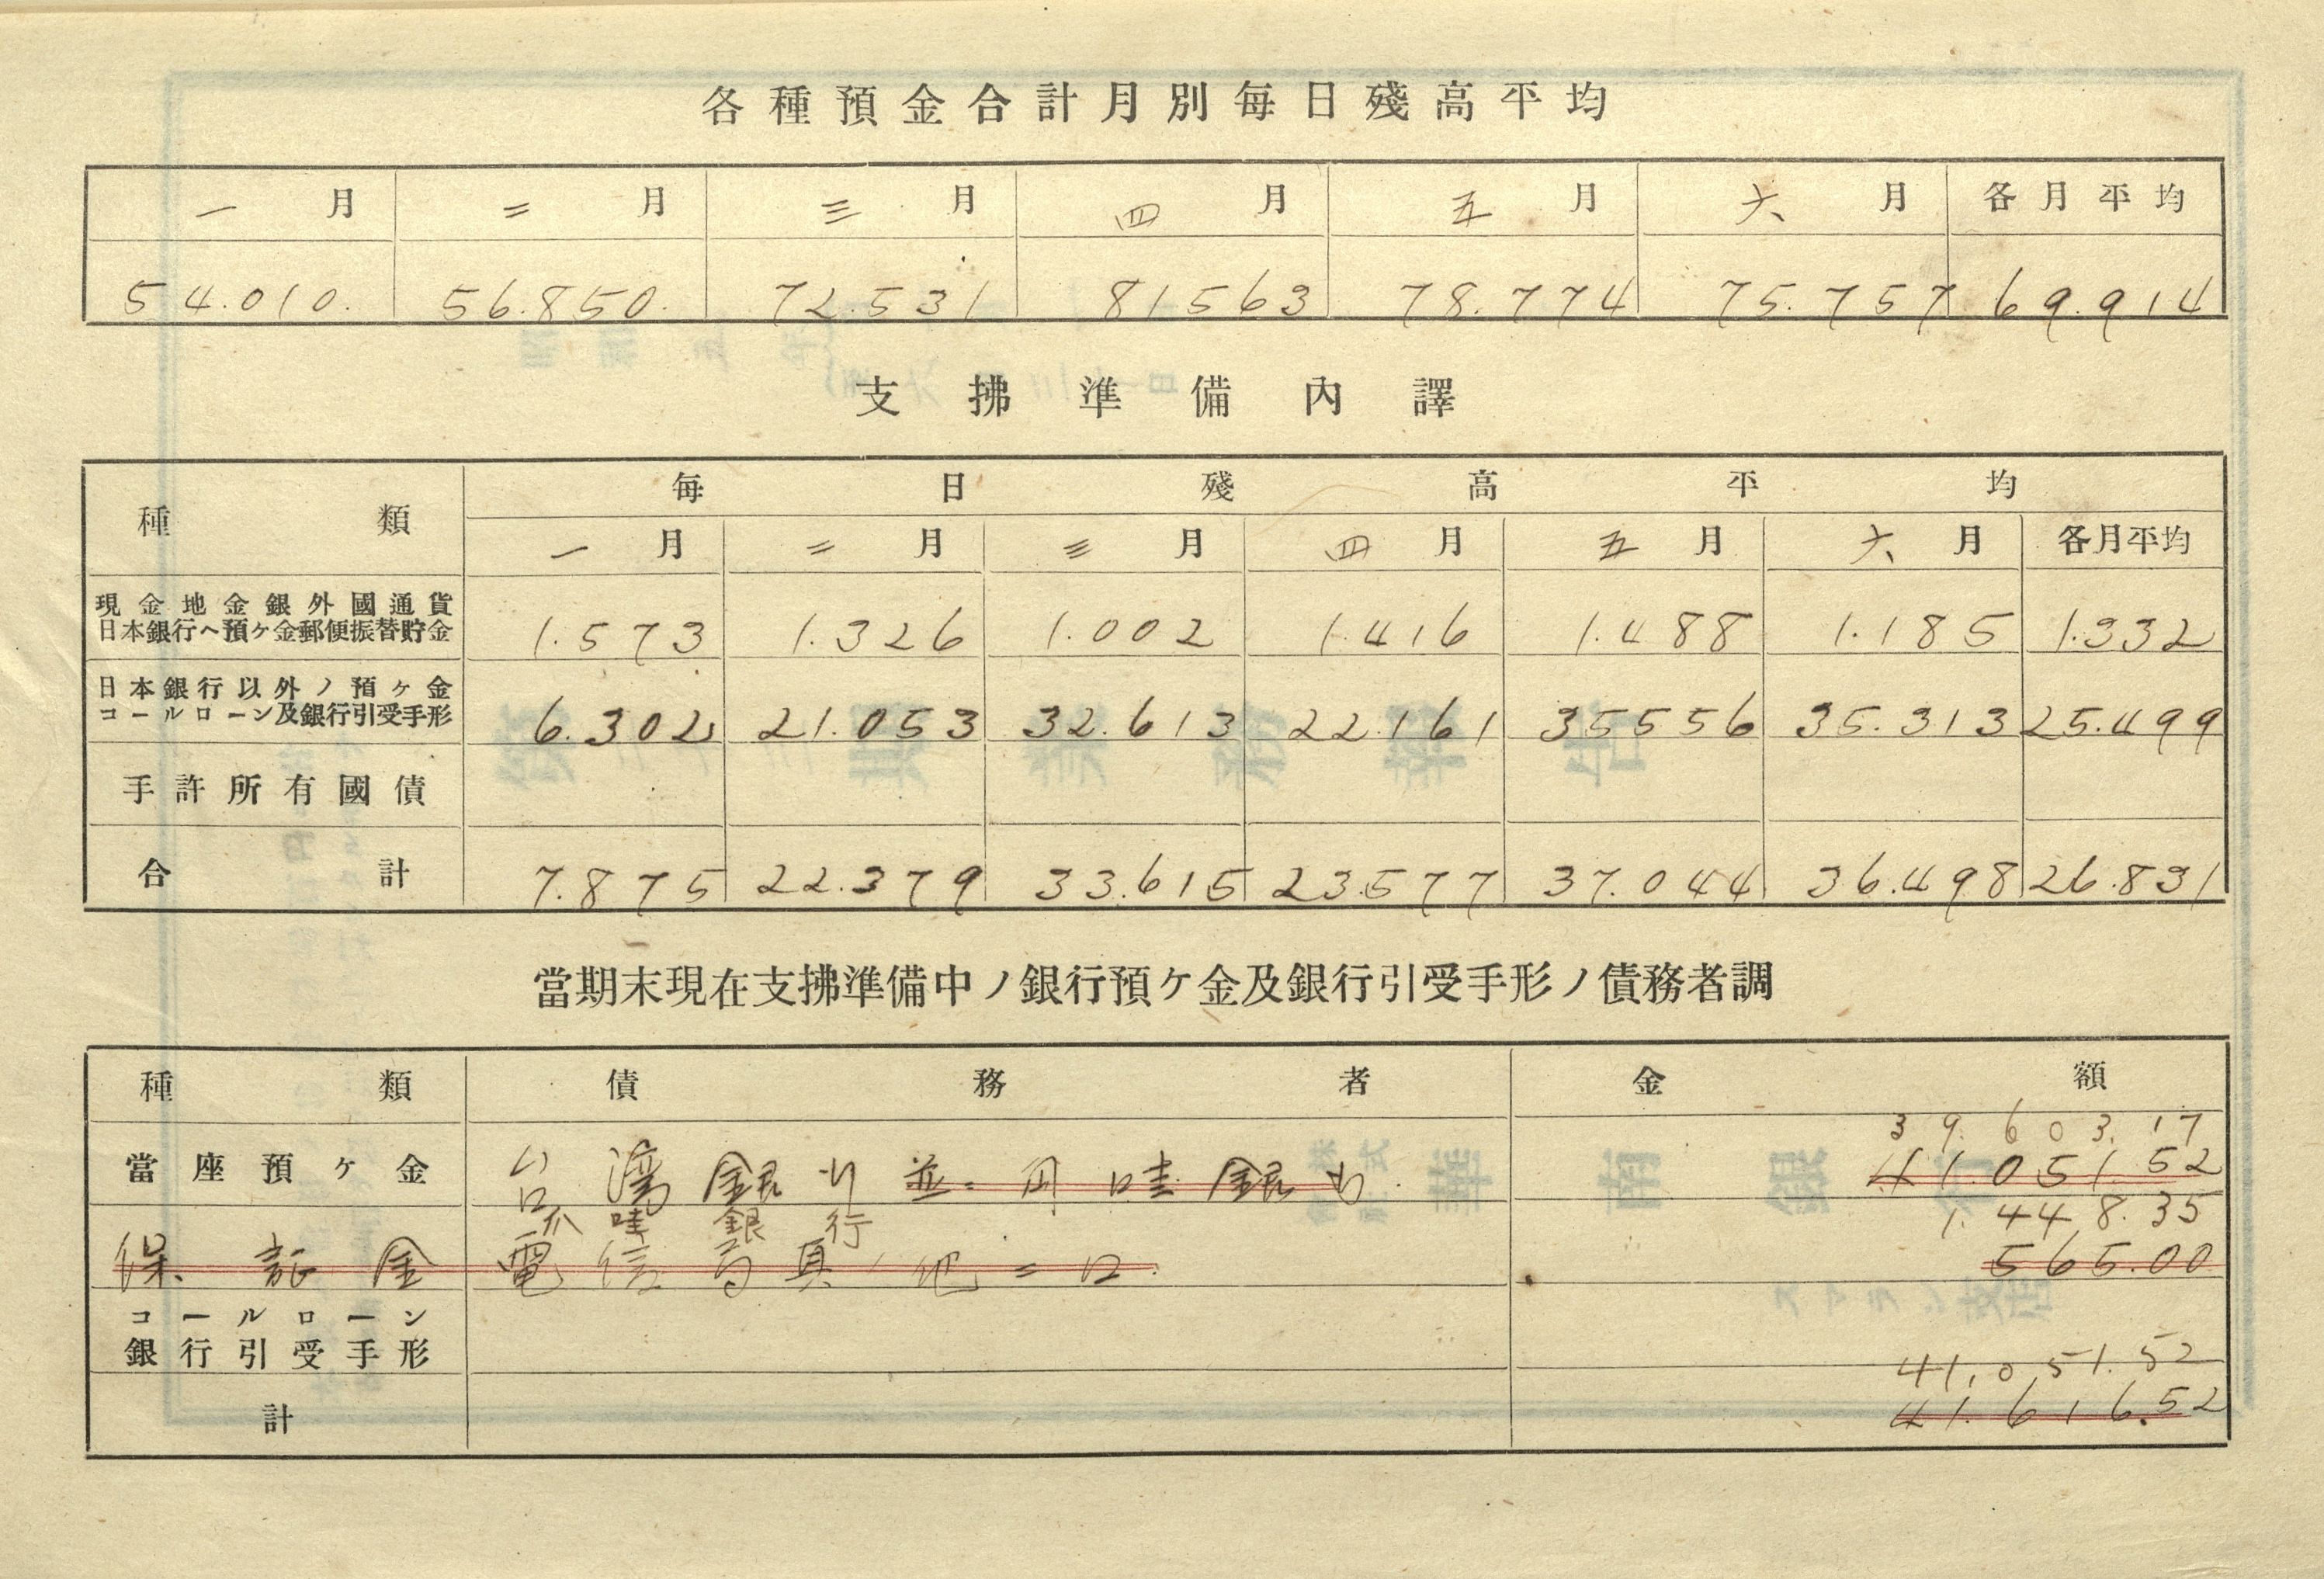 各種預金合計月別每日殘高平均
一月 二月 三月 四月 五月 六月 各月平均
54.010. 56.850. 72.531 81563 78.774 75.757 69.914
支拂準備內譯
種類 每日殘高平均
一月 二月 三月 四月 五月 六月 各月平均
現金地金銀外國通貨
日本銀行ヘ預ケ金郵便振替貯金 1.573 1.326 1.002 1.416 1.488 1.185 1.332
日本銀行以外ノ預ケ金
コールローン及銀行引受手形 6.302 21.053 32.613 22.161 35556 35.313 25.499
手許所有國債
合計 7.875 22.379 33.615 23.577 37.044 36.498 26.831
當期末現在支拂準備中ノ銀行預ケ金及銀行引受手形ノ債務者調
種類 債務者 金額
39.603.17
當座預ケ金 台灣銀行並ニ爪哇銀行 41.051.52
爪哇銀行 1.448.35
保証金 電信局其ノ他二口 565.00
コールローン
銀行引受手形
41,051.52
計 41.616.52